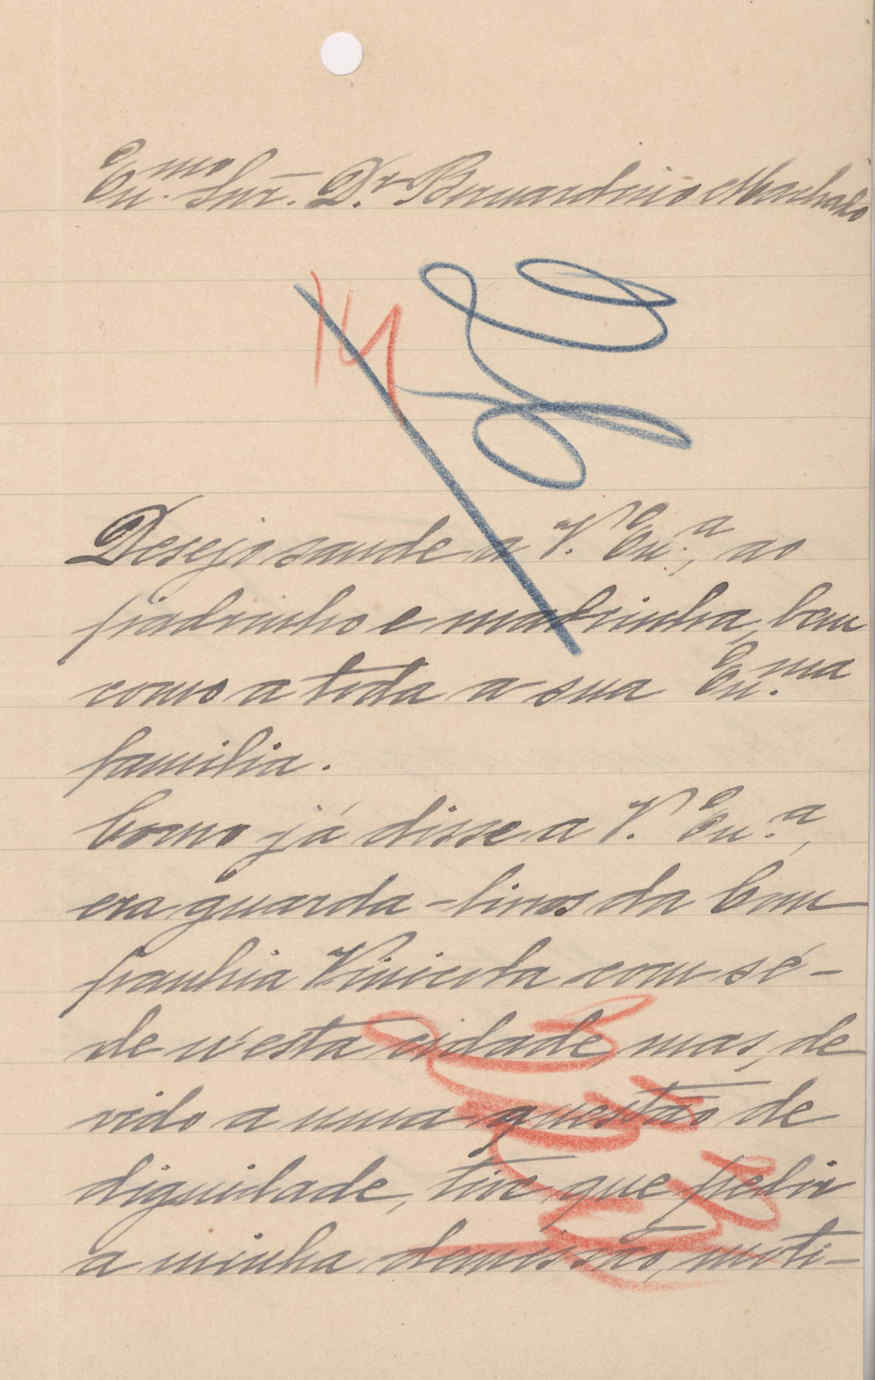 Ex.mo Snr. Dr. Bernardino Machado
Desejo saude a V. Ex.a, ao
padrinho e madrinha, bem
como a toda a sua Ex.ma
familia.
Como já disse a V. Ex.a,
era guarda-livros da Com
panhia Vinicola com sé-
de n'esta cidade, mas, de
vido a uma questão de
dignidade, tive que pedir
a minha demissão, moti-